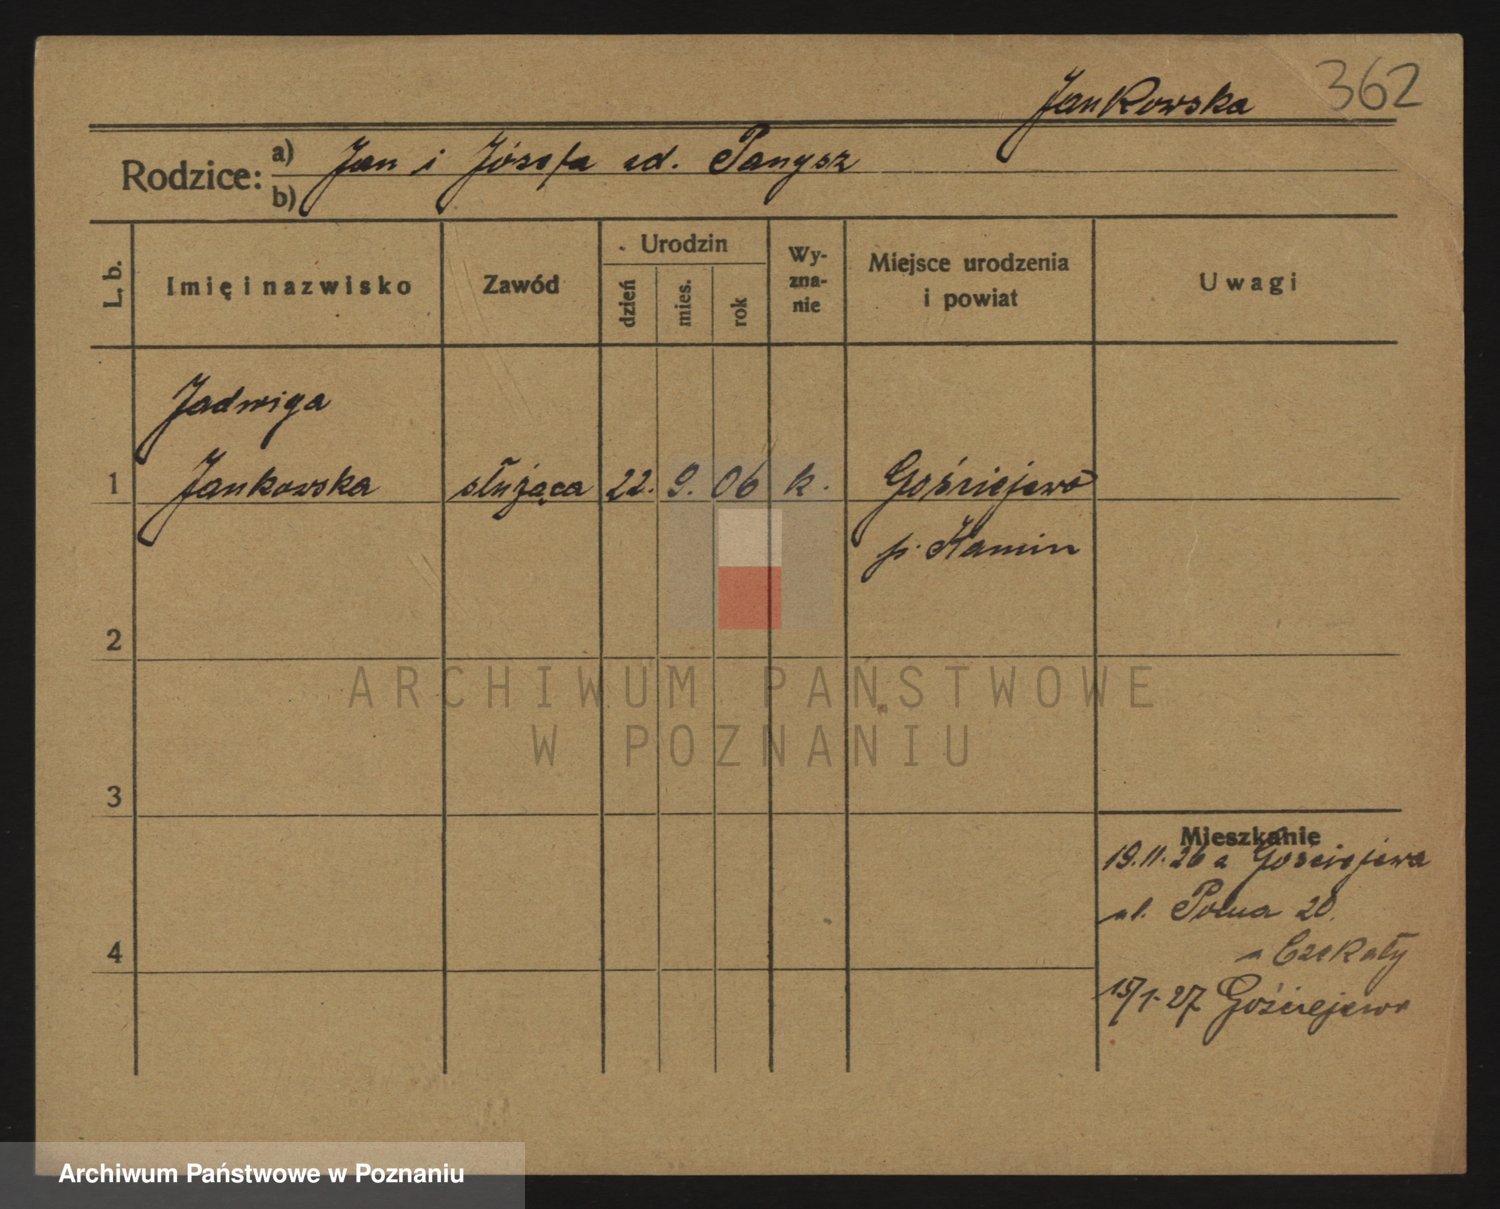 Jankowska 362
Rodzice: a) Jan i Józefa zd. Panysz
b)
L. b. Imię i nazwisko Zawód Urodzin dzień mies. rok Wy-zna-nie Miejsce urodzenia i powiat Uwagi
Jadwiga
1 Jankowska służąca 22. 9. 06 k. Gościejewo
p. Kamin
2
ARCHIWUM PAŃSTWOWE
W POZNANIU
3
Mieszkanie
19.11.26 z Gościejewa
ul. Polna 20.
Czekały
4
15/1-27 Gościejewo
Archiwum Państwowe w Poznaniu